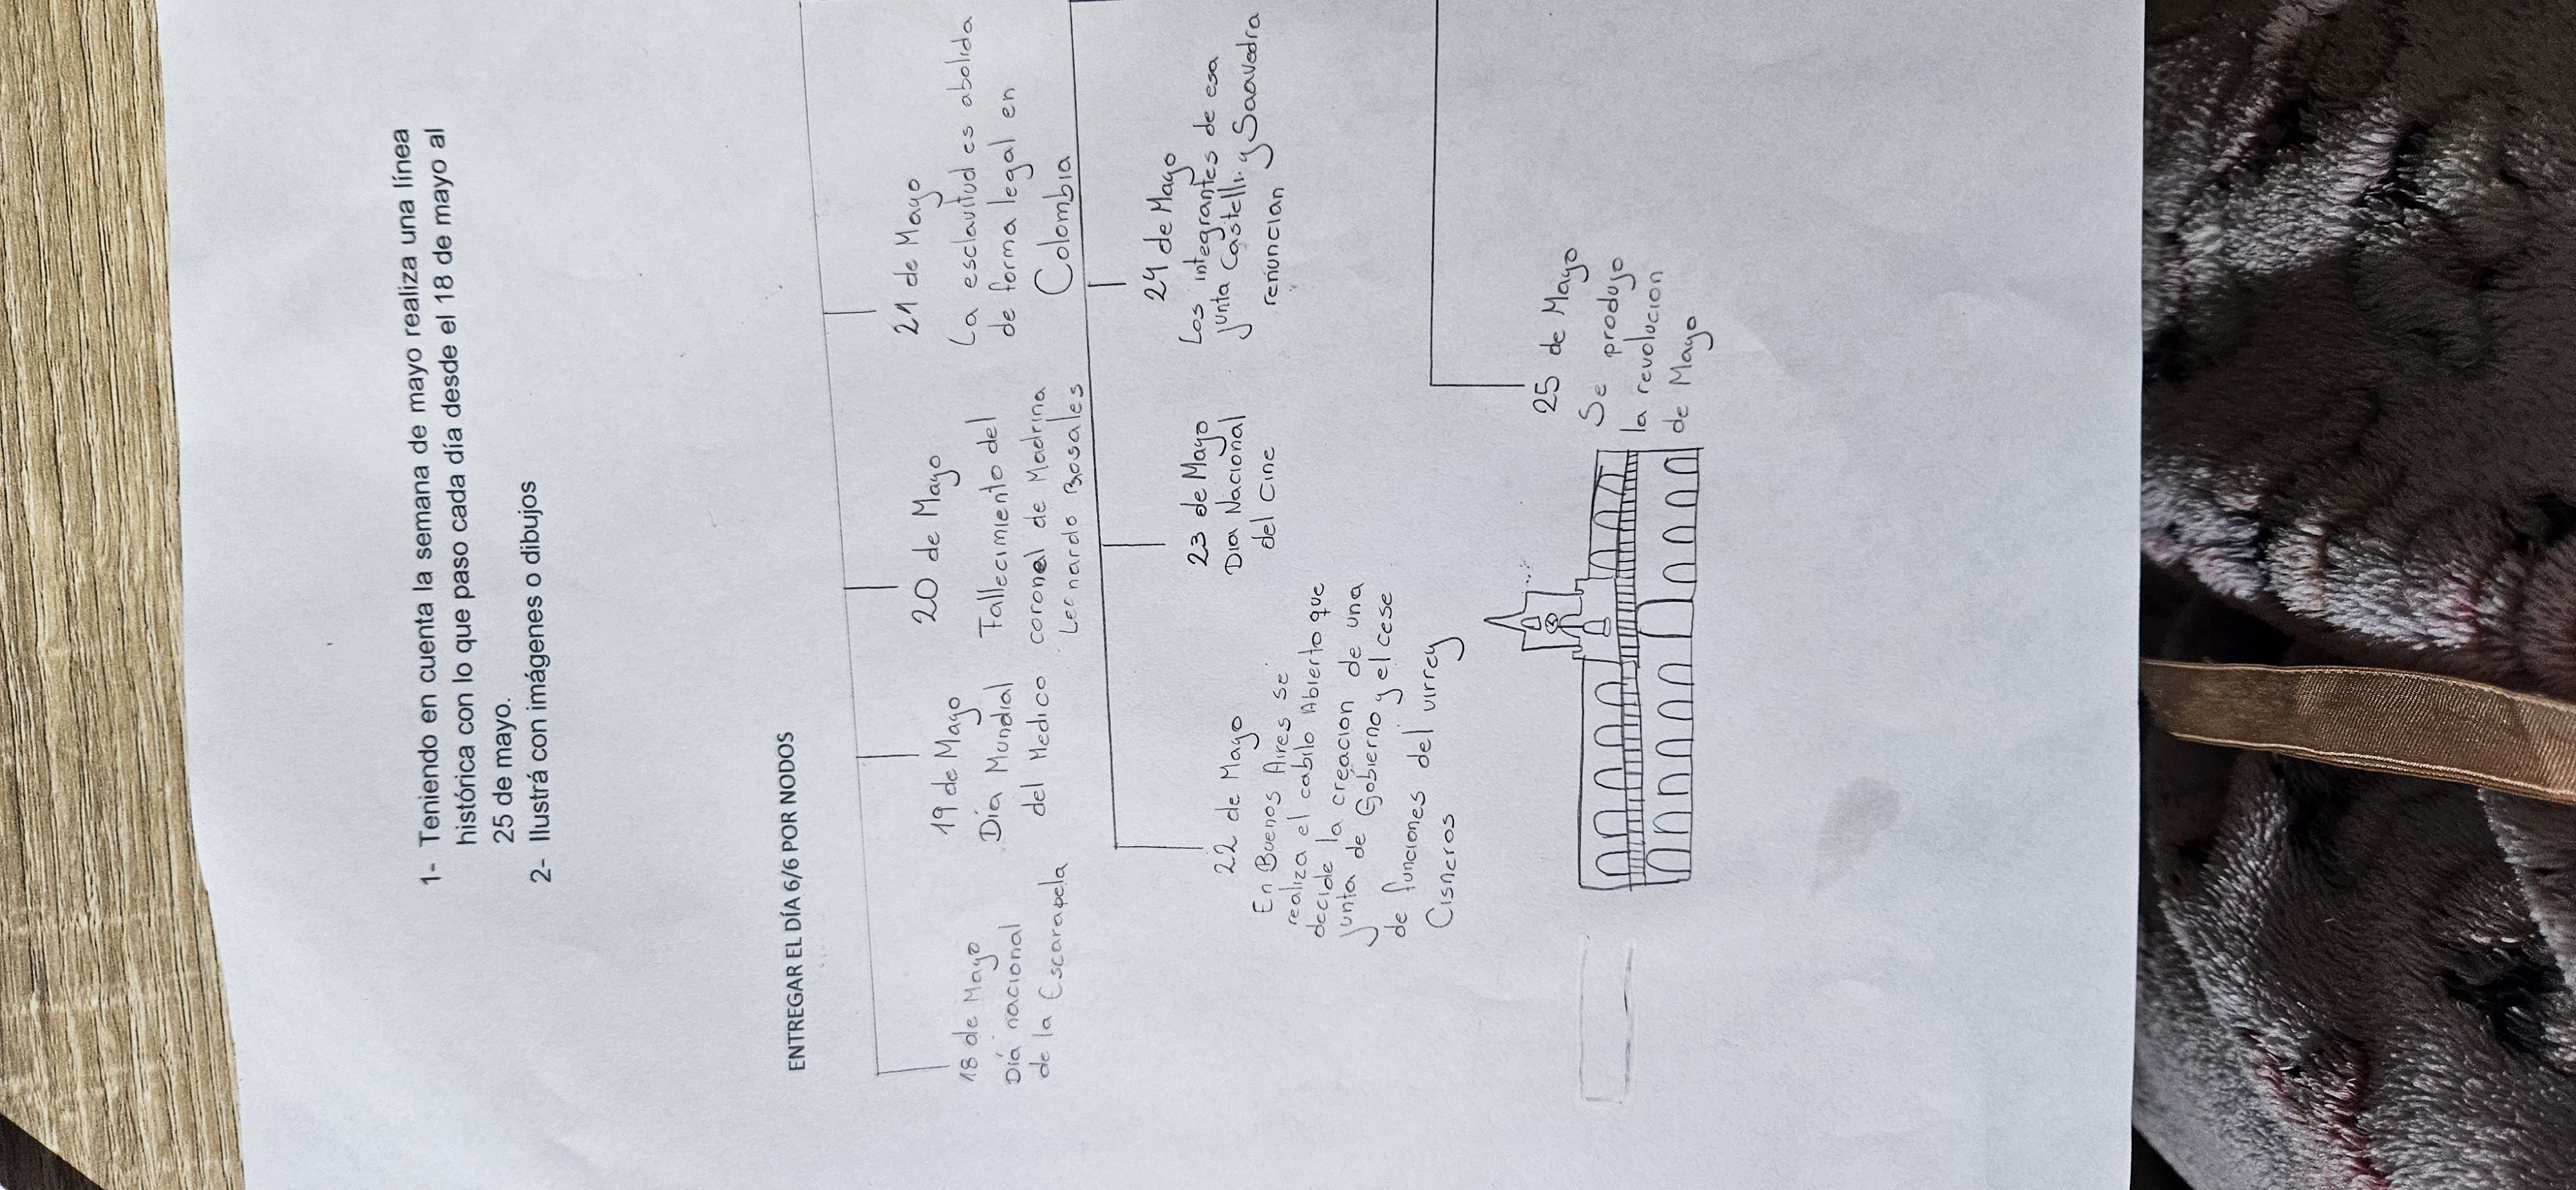 1- Teniendo en cuenta la semana de mayo realiza una línea
histórica con lo que paso cada día desde el 18 de mayo al
25 de mayo.
2- Ilustrá con imágenes o dibujos
ENTREGAR EL DÍA 6/6 POR NODOS
18 de Mayo
Día nacional
de la Escarapela
19 de Mayo
Día Mundial
del Medico
20 de Mayo
Fallecimiento del
coronel de Madrina
Leonardo Rosales
21 de Mayo
La esclavitud es abolida
de forma legal en
Colombia
22 de Mayo
En Buenos Aires se
realiza el cabilo Abierto que
decide la creacion de una
junta de Gobierno y el cese
de funciones del virrey
Cisneros
23 de Mayo
Dia Nacional
del Cine
24 de Mayo
Los integrantes de esa
junta Castelli y Saavedra
renuncian
25 de Mayo
Se produjo
la revolucion
de Mayo